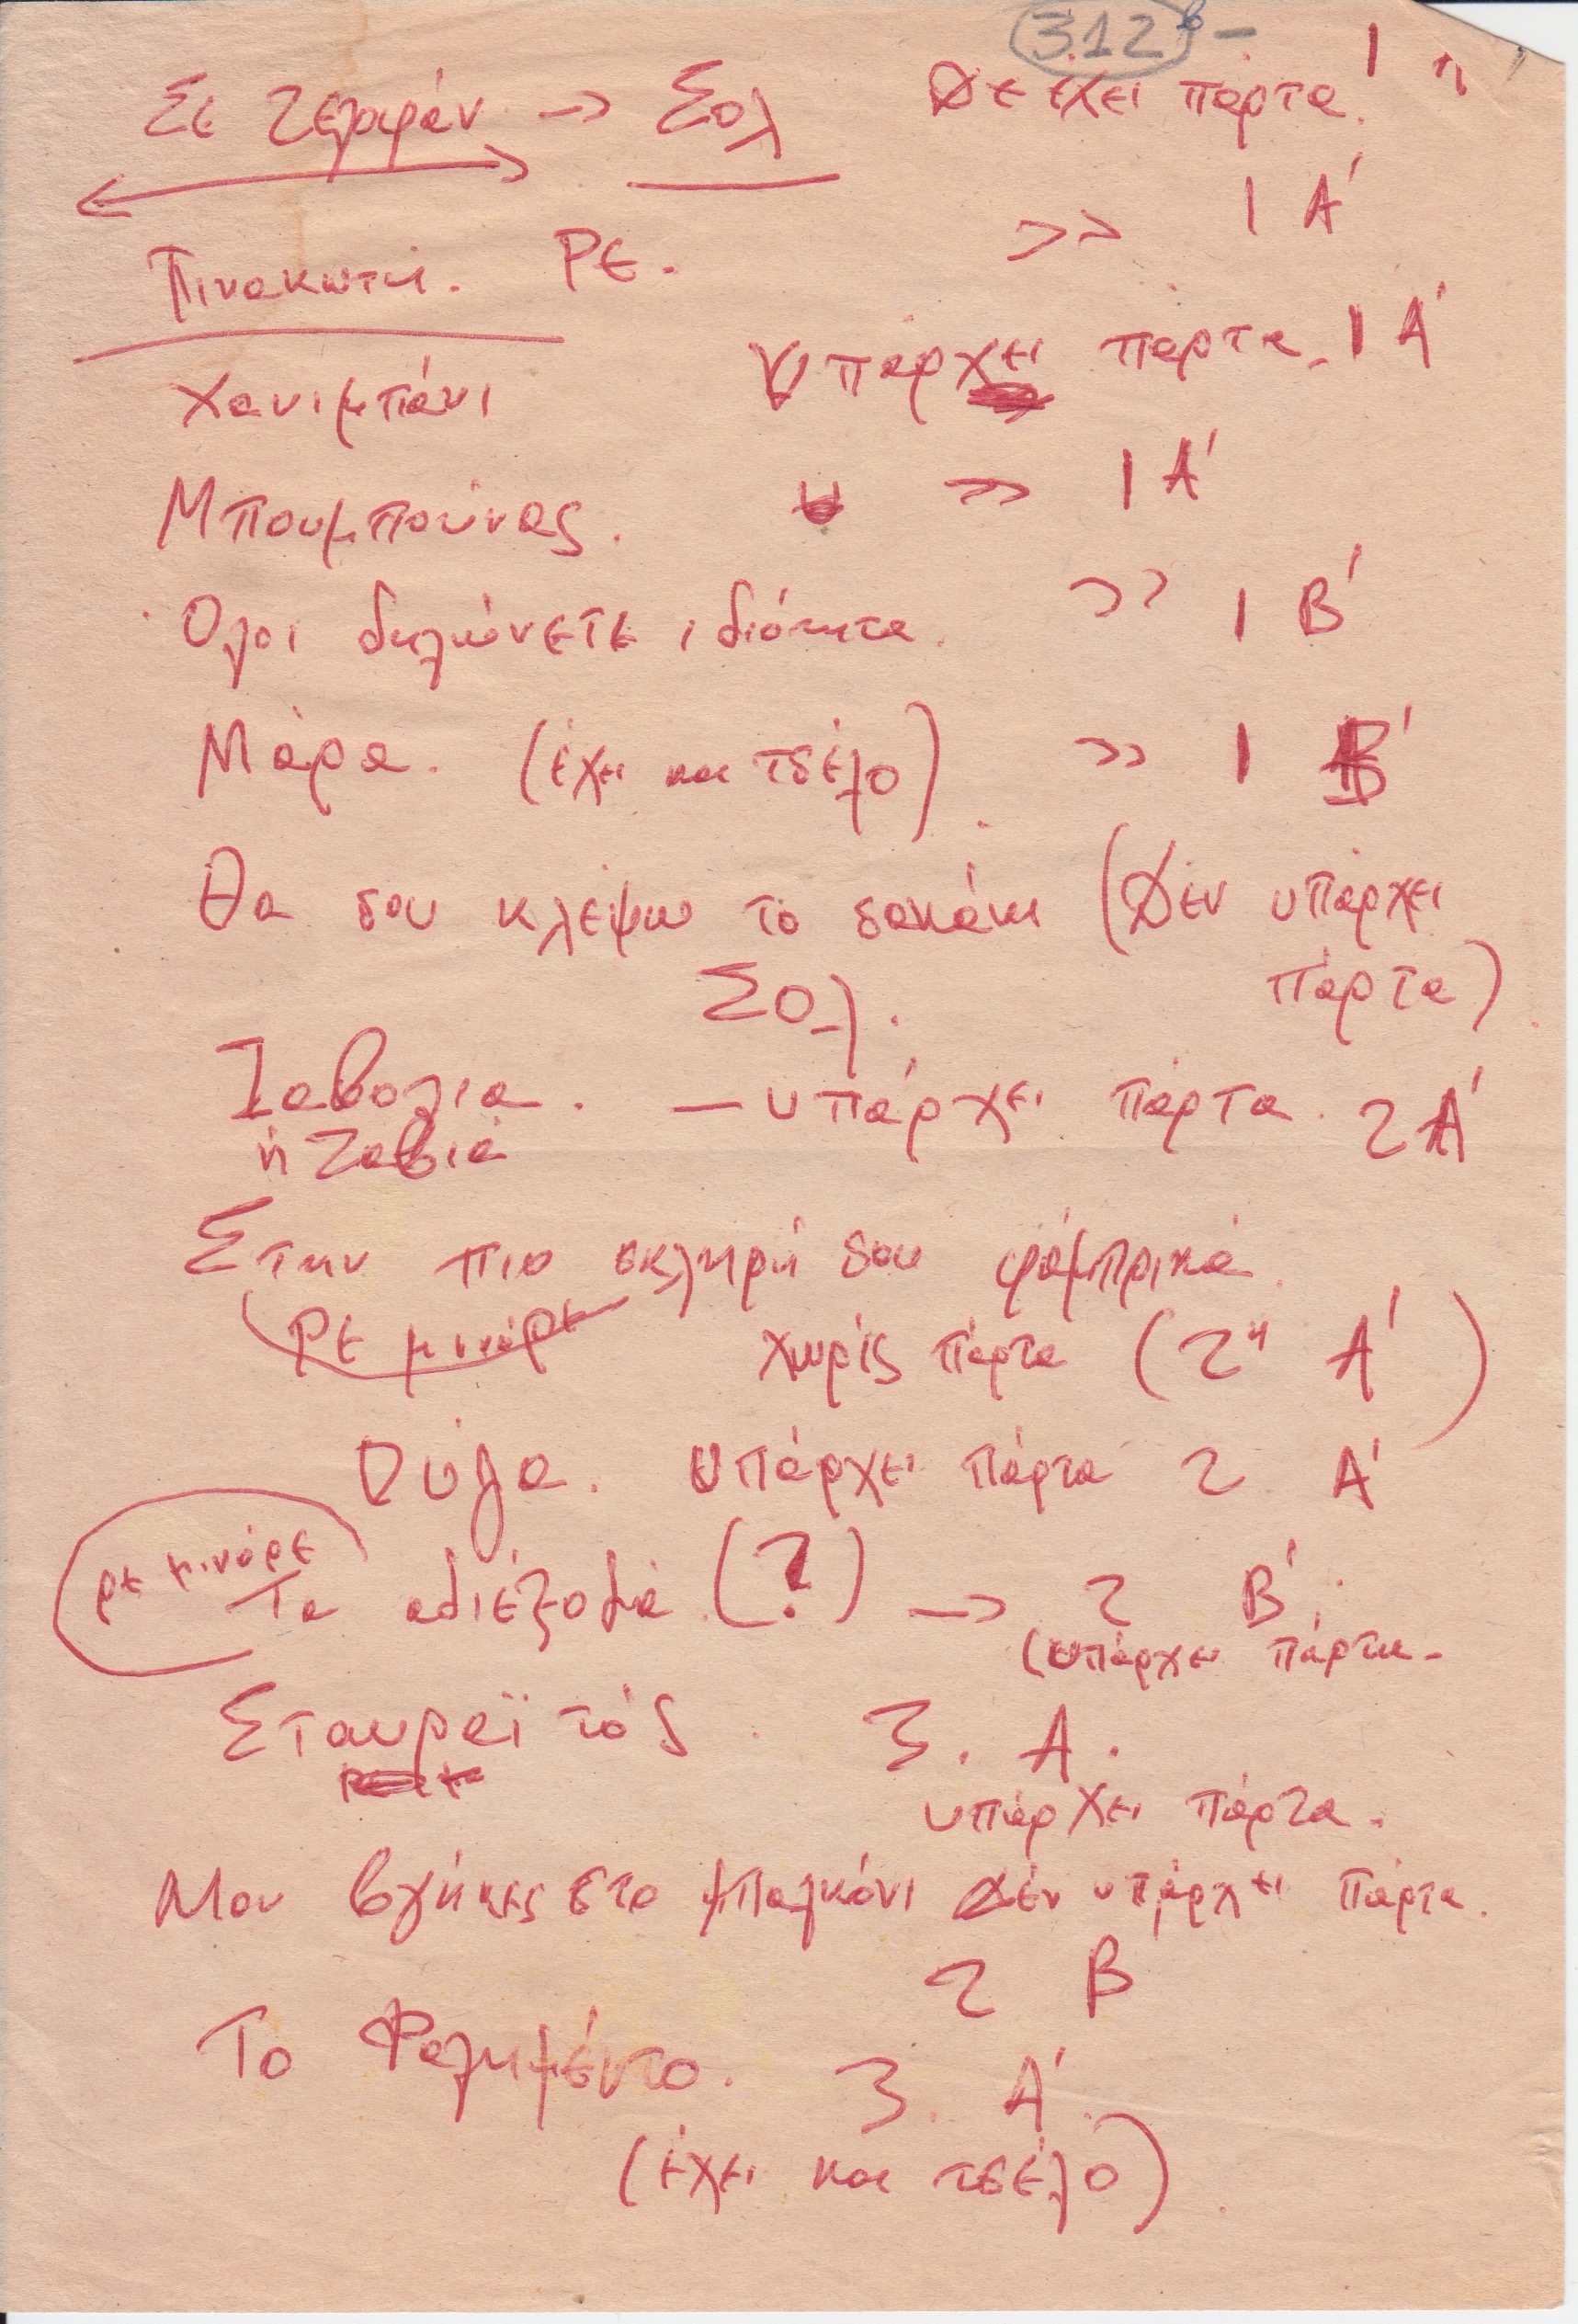 312 β -
Σε ζελοφάν -> Σολ Δε έχει πάρτα! 1 η
Πινακωτή. ΡΕ. >> 1 Α'
Χανιμπάνι Υπάρχει πάρτα. 1 Α'
Μπουμπούνας. >> 1 Α'
Ολοι δηλώνετε ιδιότητα. >> 1 Β'
Μάρα. (έχει και τσέλο). >> 1 Β'
Θα σου κλέψω το σακάκι (Δεν υπάρχει
πάρτα)
Σολ.
Ζαβολια. - υπάρχει πάρτα. 2 Α'
ή Ζαβιά
Στην πιο σκληρή σου φάμπρικα.
Ρε μινόρε χωρίς πάρτα (2η Α')
Ρόζα. υπάρχει πάρτα 2 Α'
ρε μινόρε
Τα αδιέξοδα (?) -> 2 Β'.
(υπάρχει πάρτα-
Σταυραϊτός. 3. Α.
υπάρχει πάρτα.
Μου βγήκες στο μπαλκόνι Δέν υπάρχει πάρτα.
2 Β
Το Φαλημέντο. 3. Α'.
(έχει και τσέλο).